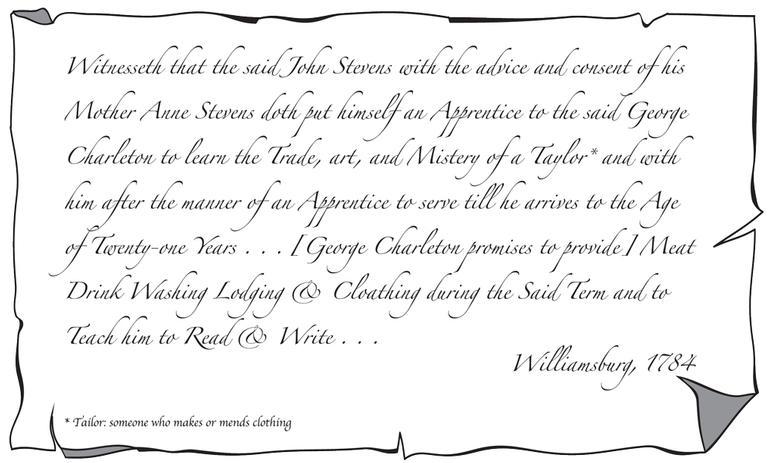 Witnesseth that the said John Stevens with the advice and consent of his
Mother Anne Stevens doth put himself an Apprentice to the said George
Charleton to learn the Trade, art, and Mistery of a Taylor* and with
him after the manner of an Apprentice to serve till he arrives to the Age
of Twenty-one Years . . . [George Charleton promises to provide] Meat
Drink Washing Lodging & Cloathing during the Said Term and to
Teach him to Read & Write . . .
Williamsburg, 1784
* Tailor: someone who makes or mends clothing